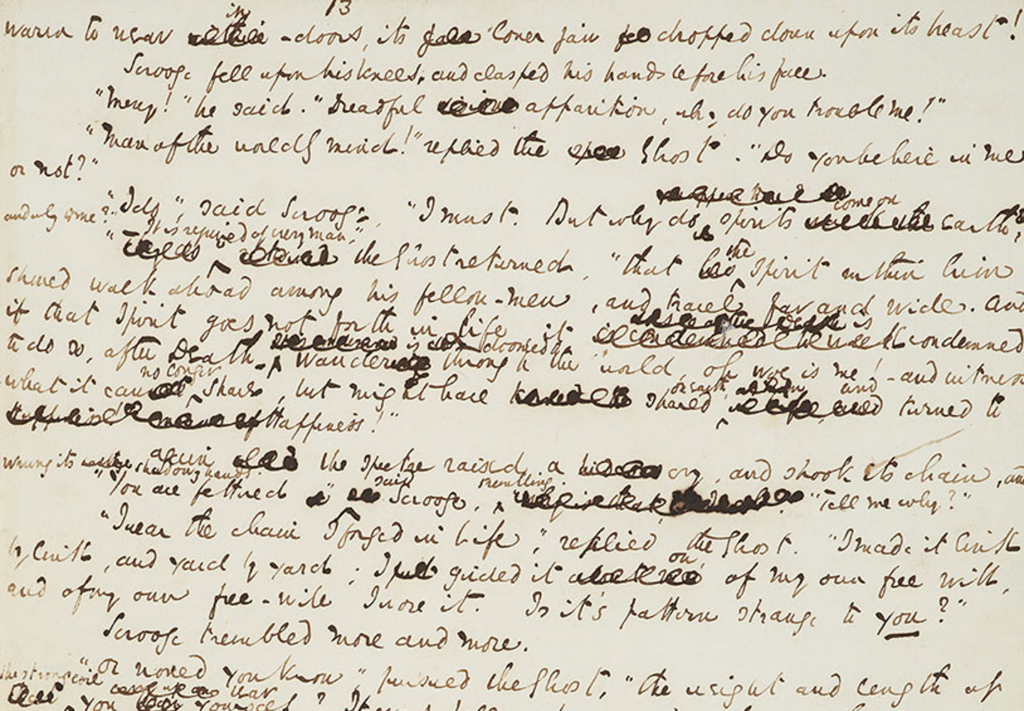 13
warm to wear in-doors, its lower jaw dropped down upon its breast!
Scrooge fell upon his knees, and clasped his hands before his face.
"Mercy!" he said. "Dreadful apparition, why do you trouble me!"
"Man of the worldly mind!" replied the Ghost. "Do you believe in me
or not?"
"I do", said Scrooge, "I must. But why do spirits come on earth,
and why come?"
"It is required of every man,"
the Ghost returned, "that the Spirit within him
should walk abroad among his fellow-men, and travel far and wide. And
if that Spirit goes not forth in life, it is condemned
to do so, after Death. doomed to wander through the world, oh woe is me! - and witness
what it cannot share, but might have shared on earth and turned to
Happiness!"
again the spectre raised a cry, and shook its chain, and
wrung its shadowy hands.
"You are fettered" said Scrooge, trembling. "Tell me why?"
"I wear the chain I forged in Life," replied the Ghost. "I made it link
by link, and yard by yard; I girded it on of my own free will,
and of my own free-will I wore it. Is it's pattern strange to you?"
Scrooge trembled more and more.
"or would you know" pursued the Ghost, "the weight and length of
the strong coil you bear yourself?